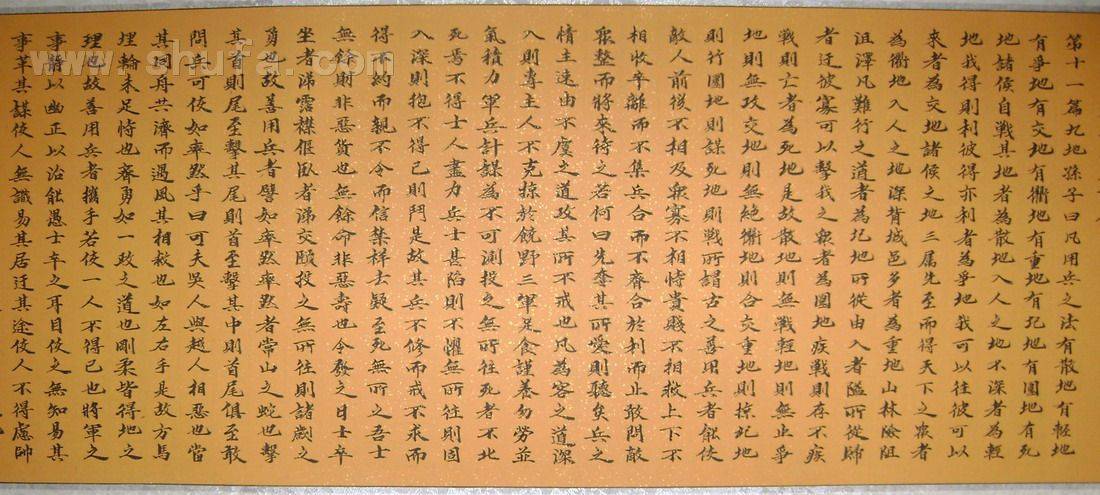 第十一篇九地孫子曰凡用兵之法有散地有輕地
有爭地有交地有衢地有重地有圮地有圍地有死
地諸侯自戰其地者為散地入人之地不深者為輕
地我得則利彼得亦利者為爭地我可以往彼可以
來者為交地諸侯之地三屬先至而得天下之衆者
為衢地入人之地深背城邑多者為重地山林險阻
沮澤凡難行之道者為圮地所從由入者隘所從歸
者迂彼寡可以擊我之衆者為圍地疾戰則存不疾
戰則亡者為死地是故散地則無戰輕地則無止爭
地則無攻交地則無絕衢地則合交重地則掠圮地
則行圍地則謀死地則戰所謂古之善用兵者能使
敵人前後不相及衆寡不相恃貴賤不相救上下不
相收卒離而不集兵合而不齊合於利而止敢問敵
衆整而將來待之若何曰先奪其所愛則聽矣兵之
情主速由不虞之道攻其所不戒也凡為客之道深
入則專主人不克掠於饒野三軍足食謹養勿勞並
氣積力軍兵計謀為不可測投之無所往死者不北
死焉不得士人盡力兵士甚陷則不懼無所往則固
入深則拘不得已則鬥是故其兵不修而戒不求而
得不約而親不令而信禁祥去疑至死無所之吾士
無餘財非惡貨也無餘命非惡壽也令發之日士卒
坐者涕霑襟偃臥者涕交頤投之無所往則諸劌之
勇也故善用兵者譬如率然率然者常山之蛇也擊
其首則尾至擊其尾則首至擊其中則首尾俱至敢
問兵可使如率然乎曰可夫吳人與越人相惡也當
其同舟共濟而遇風其相救也如左右手是故方馬
埋輪未足恃也齊勇如一政之道也剛柔皆得地之
理也故善用兵者攜手若使一人不得已也將軍之
事靜以幽正以治能愚士卒之耳目使之無知易其
事革其謀使人無識易其居迂其途使人不得慮帥
www.shufa.com